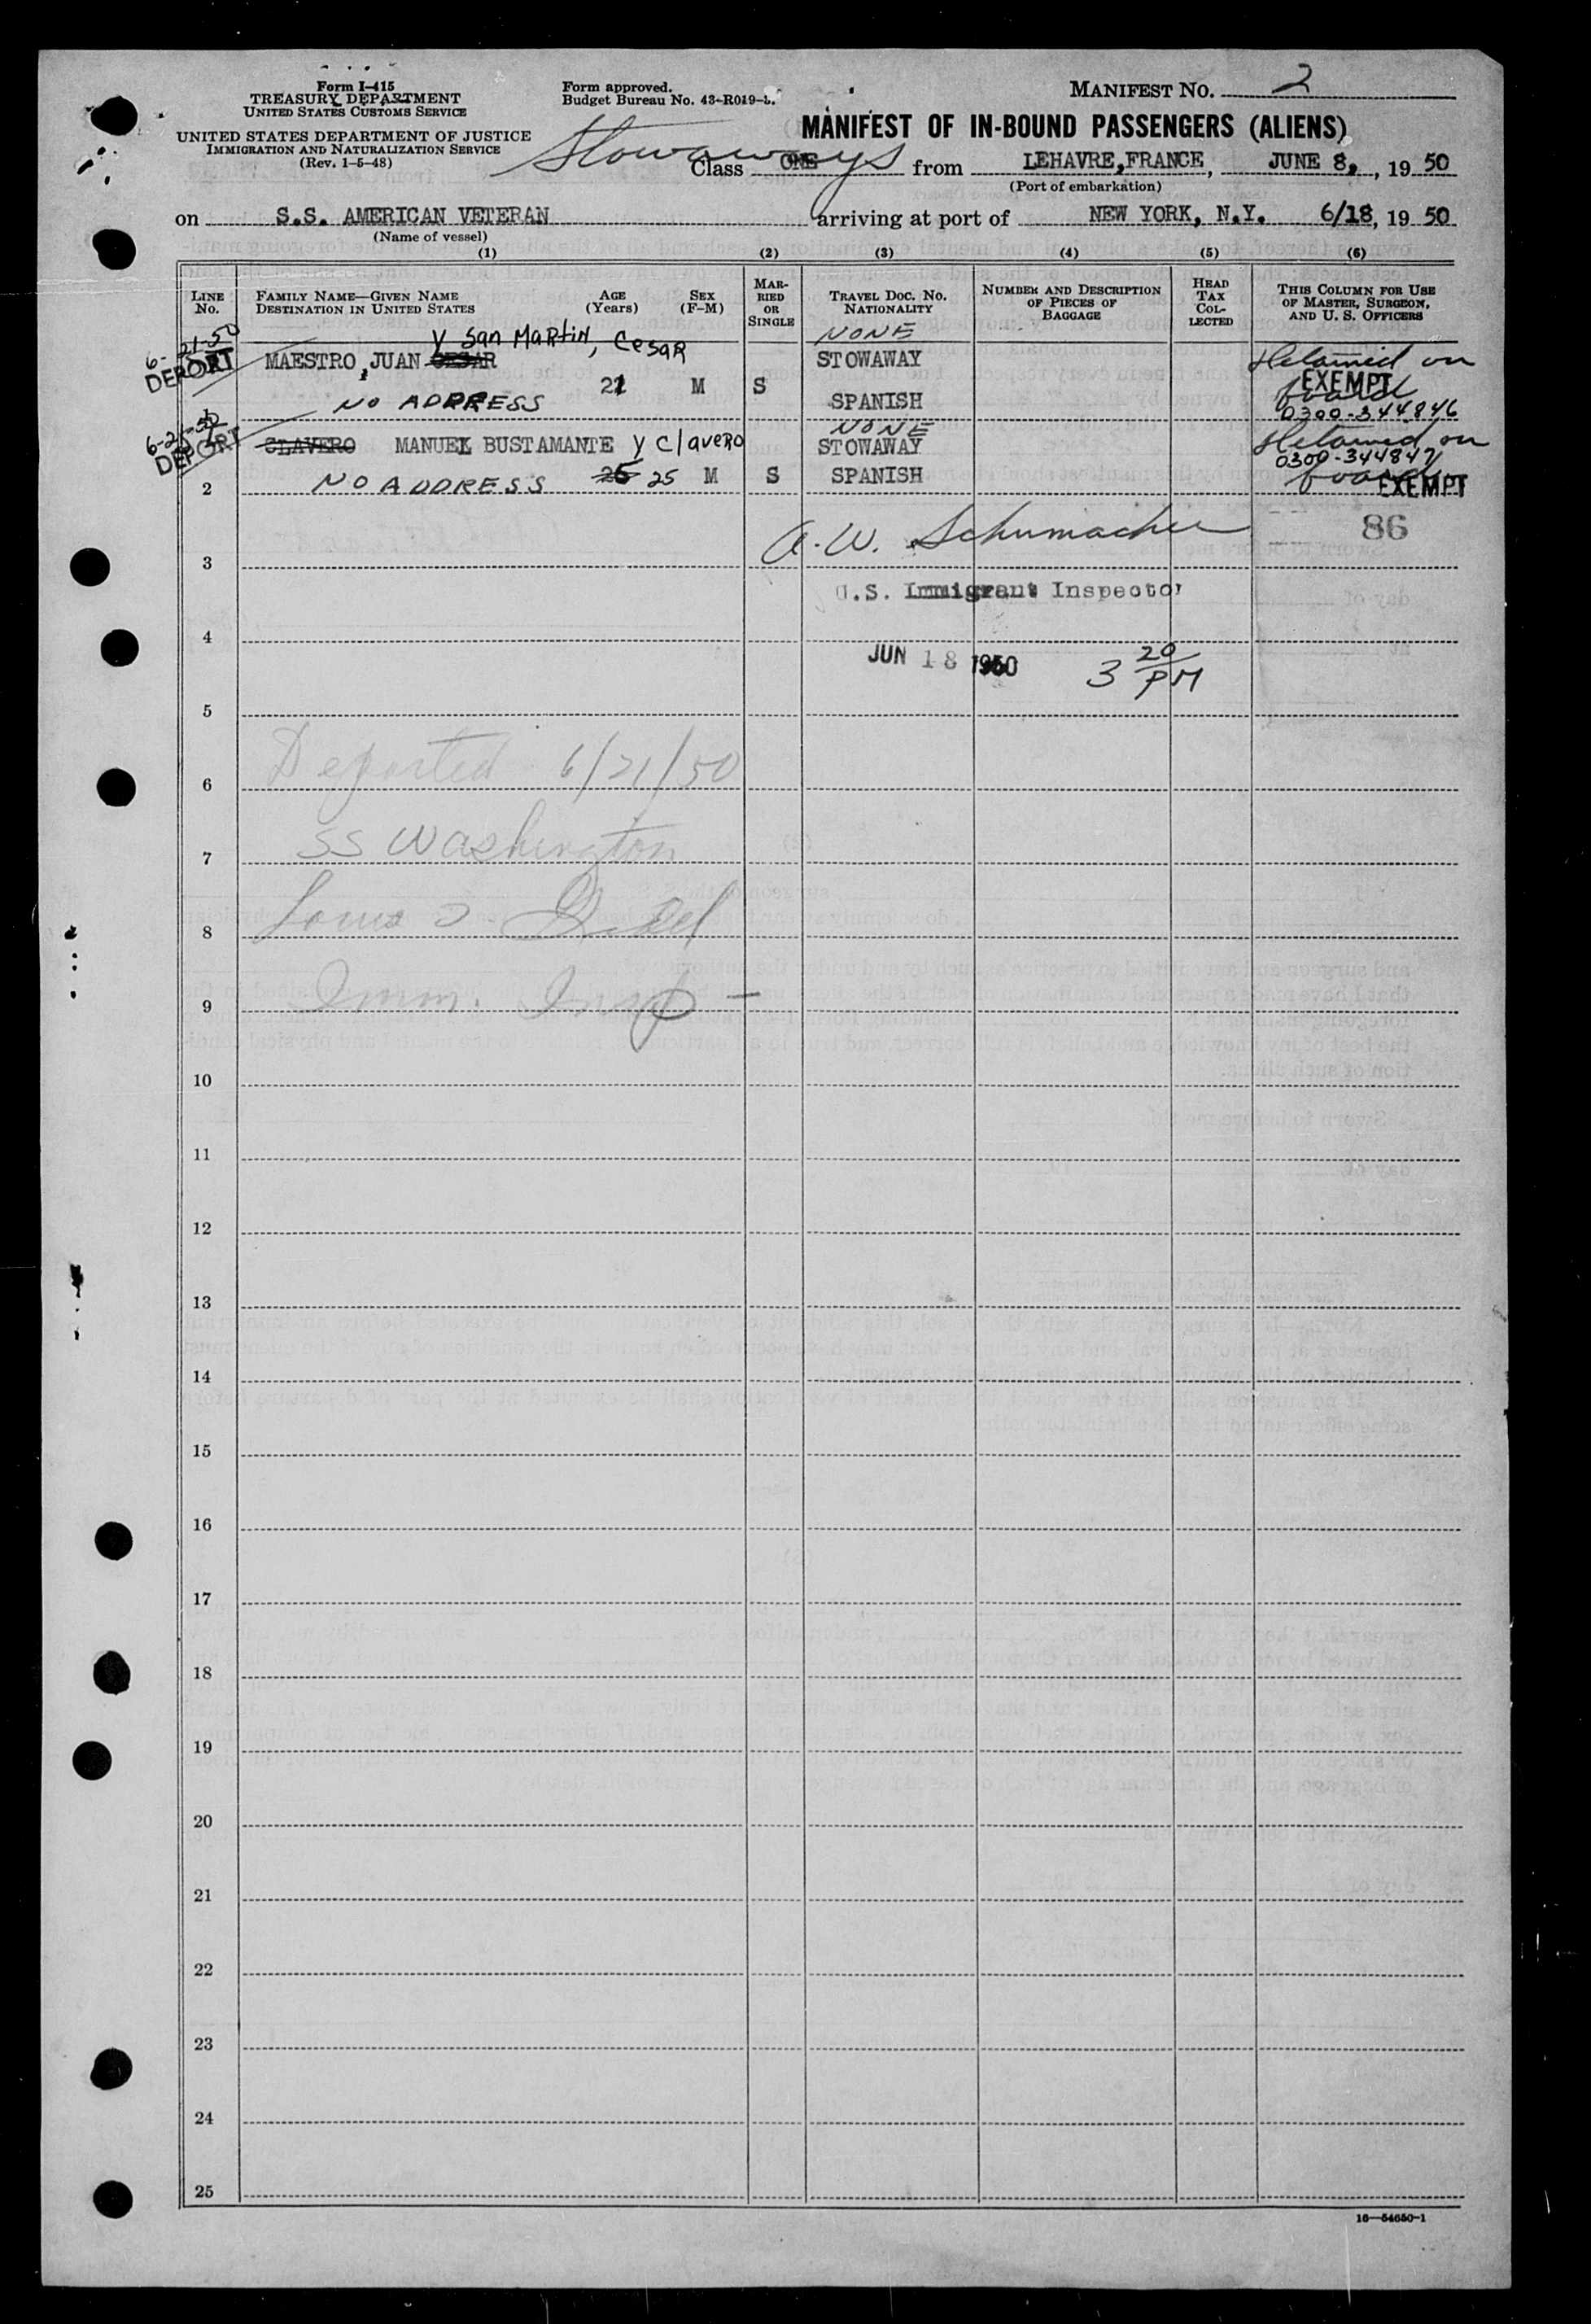 Form I-415
TREASURY DEPARTMENT
UNITED STATES CUSTOMS SERVICE
UNITED STATES DEPARTMENT OF JUSTICE
IMMIGRATION AND NATURALIZATION SERVICE
(Rev. 1-5-48)
Form approved.
Budget Bureau No. 43-R019-
MANIFEST NO. 2
MANIFEST OF IN-BOUND PASSENGERS (ALIENS)
Stowaways
Class ONE from LEHAVRE, FRANCE, JUNE 8, , 19 50
(Port of embarkation)
on S.S. AMERICAN VETERAN arriving at port of NEW YORK, N.Y. 6/18, 19 50
(Name of vessel)
(1) (2) (3) (4) (5) (6)
LINE No.
FAMILY NAME—GIVEN NAME
DESTINATION IN UNITED STATES
AGE (Years)
SEX (F-M)
MARRIED OR SINGLE
TRAVEL DOC. NO. NATIONALITY
NUMBER AND DESCRIPTION OF PIECES OF BAGGAGE
HEAD TAX COLLECTED
THIS COLUMN FOR USE OF MASTER, SURGEON, AND U. S. OFFICERS
6-21-50 y San Martin, Cesar NONE
DEPORT MAESTRO, JUAN CESAR STOWAWAY Detained on
21 M S EXEMPT board
NO ADDRESS SPANISH 0300-344846
6-21-50 NONE
DEPORT CLAVERO MANUEL BUSTAMANTE y Clavero STOWAWAY Detained on
0300-344847
2 NO ADDRESS 25 25 M S SPANISH board EXEMPT
A. W. Schumacher 86
3
U.S. Immigrant Inspector
4
JUN 18 1950 3 20 PM
5
Deported 6/21/50
6
SS Washington
7
8
Imm. Insp -
9
10
11
12
13
14
15
16
17
18
19
20
21
22
23
24
25
16—54650-1